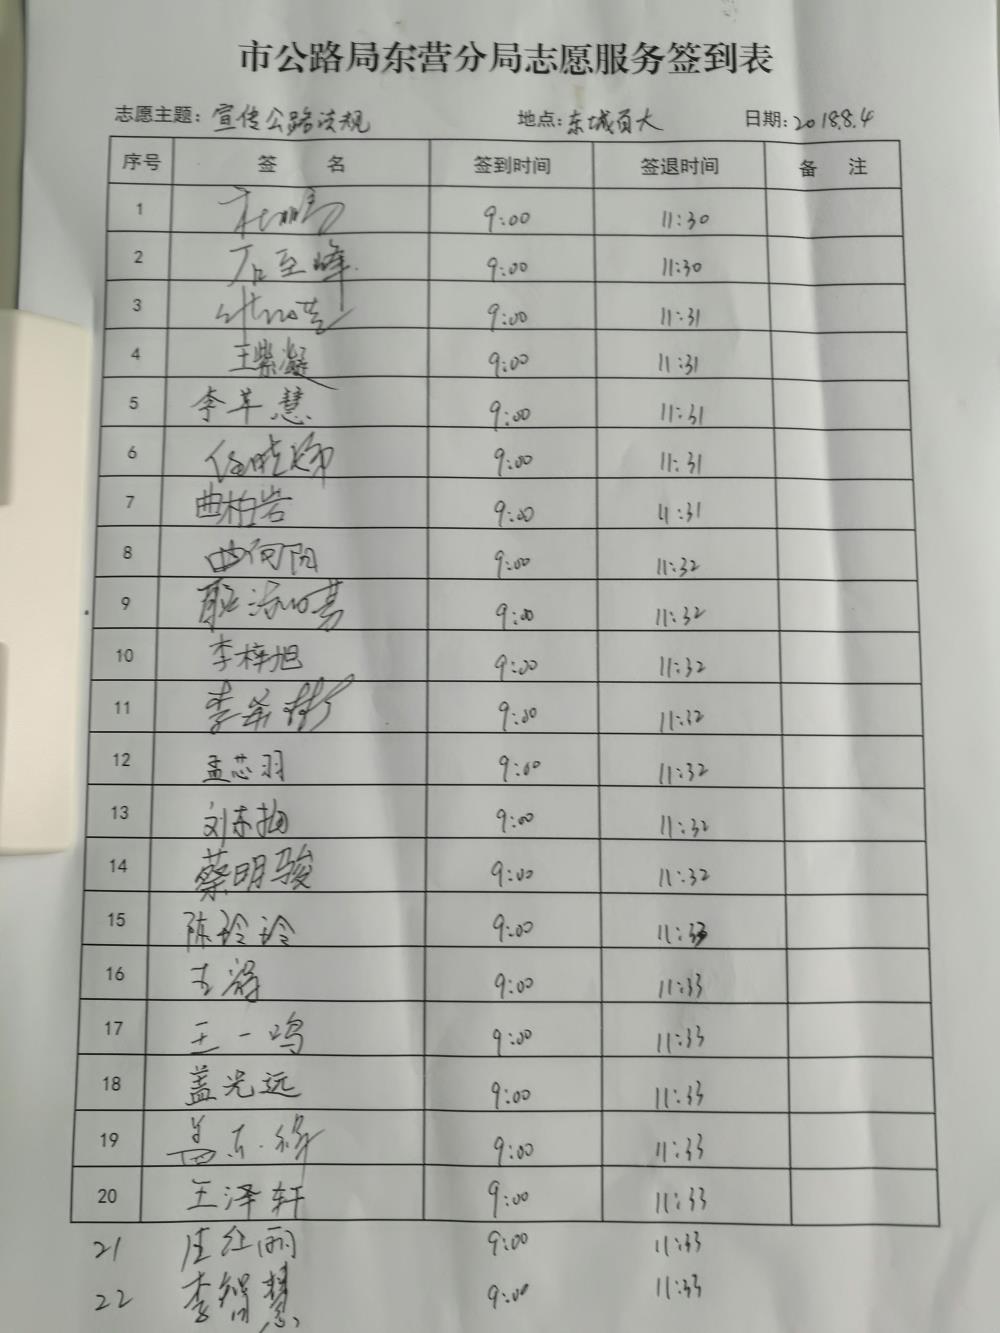 市公路局东营分局志愿服务签到表
志愿主题: 宣传公路法规 地点: 东城百大 日期: 2018.8.4
序号 签 名 签到时间 签退时间 备 注
1 9:00 11:30
2 石玉峰 9:00 11:30
3 9:00 11:31
4 王紫凝 9:00 11:31
5 李苹慧 9:00 11:31
6 任晓婷 9:00 11:31
7 曲柏岩 9:00 11:31
8 曲向阳 9:00 11:32
9 9:00 11:32
10 李梓旭 9:00 11:32
11 李希彬 9:00 11:32
12 孟芯羽 9:00 11:32
13 刘东 9:00 11:32
14 蔡明骏 9:00 11:32
15 陈玲玲 9:00 11:33
16 9:00 11:33
17 王一鸣 9:00 11:33
18 盖光远 9:00 11:33
19 9:00 11:33
20 王泽轩 9:00 11:33
21 红丽 9:00 11:33
22 李智慧 9:00 11:33